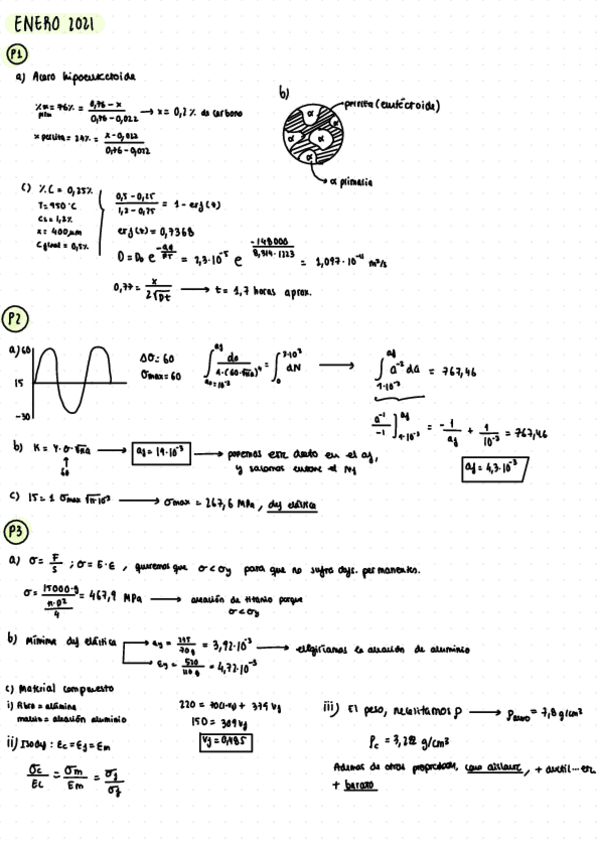 ENERO 2021
P1
a) Acero hipoeutectoide
= 76% = (0,76 - x)/(0,76 - 0,022) → x = 0,2 % de carbono
x perlita = 24% = (x - 0,022)/(0,76 - 0,022)
b)
perlita (eutéctoide)
α α α α
α primaria
c) % C = 0,25%
T = 950 °C
Cs = 1,2%
x = 400 μm
C final = 0,5%
(0,5 - 0,25)/(1,2 - 0,25) = 1 - erf(z)
erf(z) = 0,7368
= 2,3·10⁻⁵ e^(-148000/(8,314·1223)) = 1,097·10⁻¹¹ m²/s
0,77 = x/(2√Dt) → t = 1,7 horas aprox.
P2
a) 60
15
-30
Δσ = 60
σmax = 60
= 767,46
= -1/af + 1/10⁻³ = 767,46
af = 4,3·10⁻³
b) K = Y·σ·√πa → af = 19·10⁻³ → ponemos este dato en el af,
60
y sacamos entonces el Nf
c) 15 = 1 σmax √π10⁻³ → σmax = 267,6 MPa, def elástica
P3
a) σ = F/S ; σ = E·ε, queremos que σ < σy para que no sufra defs. permanentes.
= 467,9 MPa → aleación de titanio porque
σ < σy
b) Mínima def elástica
= 3,92·10⁻³ → elegiríamos la aleación de aluminio
εy = 520/110 = 4,72·10⁻³
c) Material compuesto
i) fibra = alúmina
matriz = aleación aluminio
220 = 70(1-Vf) + 379 Vf
150 = 309 Vf
Vf = 0,485
ii) Isodef : εc = εf = εm
σc/Ec = σm/Em =
iii) El peso, necesitamos ρ → ρacero = 7,8 g/cm³
g/cm³
Además de otras propiedades, como aislante, + dúctil... etc
+ barato